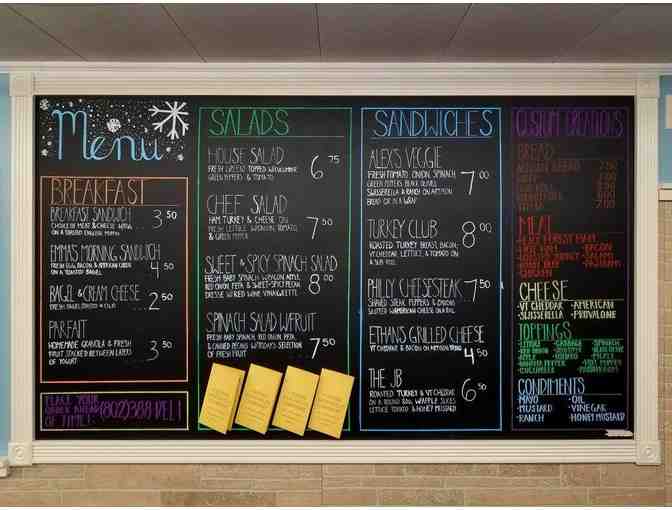 Menu
BREAKFAST
BREAKFAST SANDWICH
CHOICE OF MEAT & CHEESE WITH EGG
ON A TOASTED ENGLISH MUFFIN
3 50
EMMA'S MORNING SANDWICH
FRESH EGG, BACON & AMERICAN CHEESE
ON A TOASTED BAGEL
4 50
BAGEL & CREAM CHEESE
FRESH BAGEL TOASTED
2 50
PARFAIT
HOMEMADE GRANOLA & FRESH
FRUIT STACKED BETWEEN LAYERS
OF YOGURT
3 50
PLACE YOUR
ORDER AHEAD
OF TIME!
(802)388 DELI
SALADS
HOUSE SALAD
FRESH GREENS TOPPED W/CUCUMBER
GREEN PEPPERS & TOMATO
6 75
CHEF SALAD
HAM, TURKEY & CHEESE ON
FRESH LETTUCE W/ONION, TOMATO,
& GREEN PEPPER
7 50
SWEET & SPICY SPINACH SALAD
FRESH BABY SPINACH W/BACON, APPLE,
RED ONION, FETA & SWEET-SPICY PECANS
DRESSED W/RED WINE VINAIGRETTE
8 00
SPINACH SALAD W/FRUIT
FRESH BABY SPINACH, RED ONION, FETA,
& CANDIED PECANS W/TODAY'S SELECTION
OF FRESH FRUIT
7 50
SANDWICHES
ALEX'S VEGGIE
FRESH TOMATO, ONION, SPINACH,
GREEN PEPPERS, BLACK OLIVES,
SWISSERELLA & RANCH ON ARTISAN
BREAD OR IN A WRAP
7 00
TURKEY CLUB
ROASTED TURKEY BREAST, BACON,
VT CHEDDAR, LETTUCE, & TOMATO ON
A SUB ROLL
8 00
PHILLY CHEESESTEAK
SHAVED STEAK, PEPPERS & ONIONS
W/AMERICAN CHEESE ON A ROLL
7 50
ETHAN'S GRILLED CHEESE
VT CHEDDAR & BACON ON ARTISAN BREAD
4 50
THE JB
ROASTED TURKEY & VT CHEDDAR
ON A ROLL WAFFLE SLICES
LETTUCE TOMATO & HONEY MUSTARD
6 50
CUSTOM CREATIONS
BREAD
MEAT
BLACK FOREST HAM
BACON
SALAMI
PASTRAMI
CHICKEN
CHEESE
VT CHEDDAR • AMERICAN
SWISSERELLA • PROVALONE
TOPPINGS
• LETTUCE • CABBAGE • SPINACH
• CUCUMBER
CONDIMENTS
• MAYO • OIL
• MUSTARD • VINEGAR
• RANCH • HONEY MUSTARD